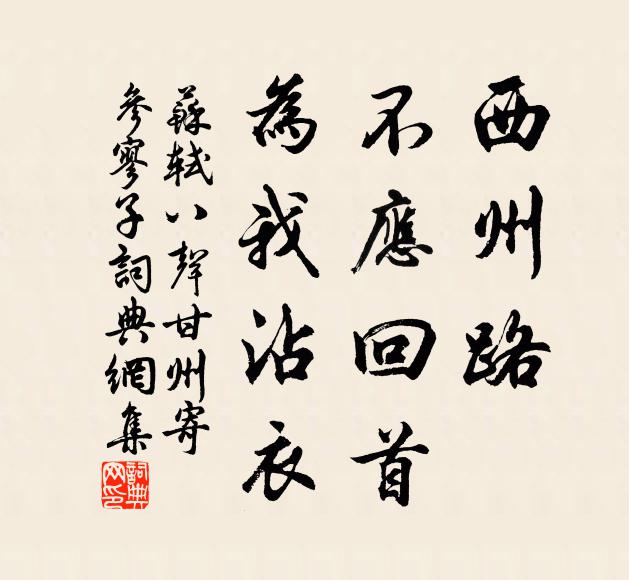 西州路
不應回首
為我沾衣
蘇軾八聲甘州寄
參寥子詞典網集
詞典
网印